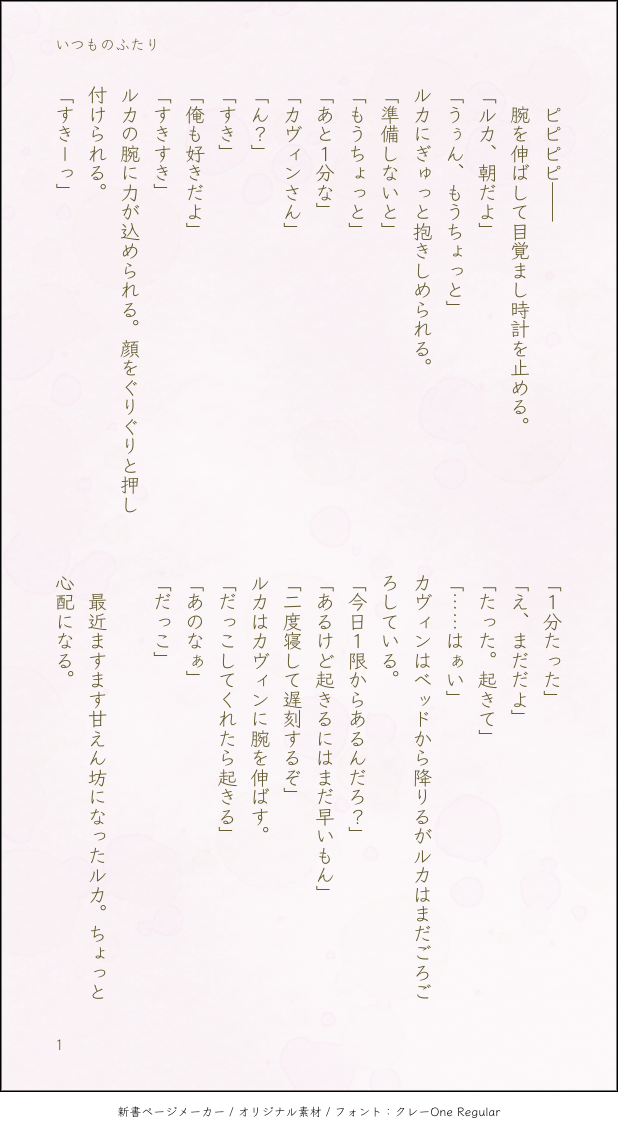 いつものふたり
ピピピピ――
腕を伸ばして目覚まし時計を止める。
「ルカ、朝だよ」
「うぅん、もうちょっと」
ルカにぎゅっと抱きしめられる。
「準備しないと」
「もうちょっと」
「あと1分な」
「カヴィンさん」
「ん?」
「すき」
「俺も好きだよ」
「すきすき」
ルカの腕に力が込められる。顔をぐりぐりと押し
付けられる。
「すきーっ」
「1分たった」
「え、まだだよ」
「たった。起きて」
「……はぁい」
カヴィンはベッドから降りるがルカはまだごろご
ろしている。
「今日1限からあるんだろ?」
「あるけど起きるにはまだ早いもん」
「二度寝して遅刻するぞ」
ルカはカヴィンに腕を伸ばす。
「だっこしてくれたら起きる」
「あのなぁ」
「だっこ」
最近ますます甘えん坊になったルカ。ちょっと
心配になる。
1
新書ページメーカー / オリジナル素材 / フォント:クレーOne Regular